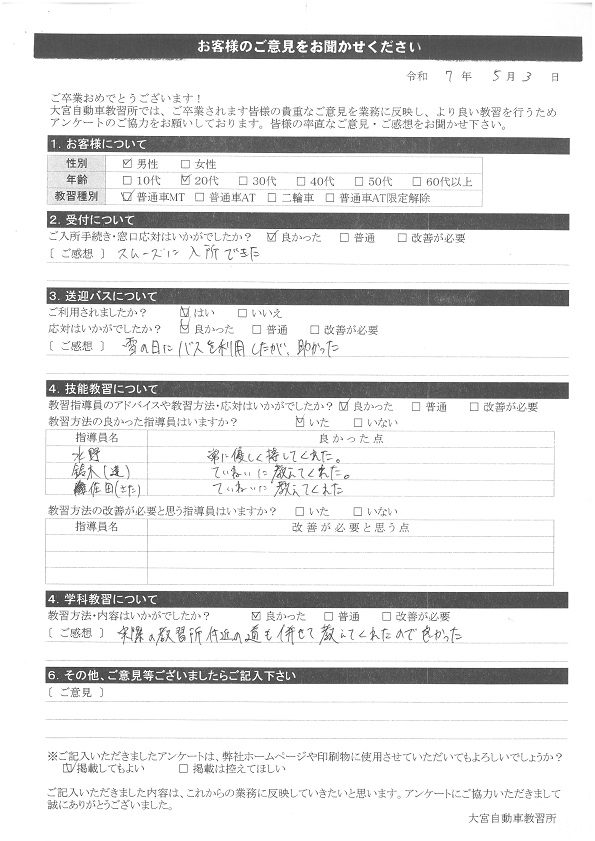 お客様のご意見をお聞かせください
令和 7 年 5 月 3 日
ご卒業おめでとうございます！
大宮自動車教習所では、ご卒業されます皆様の貴重なご意見を業務に反映し、より良い教習を行うため
アンケートのご協力をお願いしております。皆様の率直なご意見・ご感想をお聞かせ下さい。
1. お客様について
性別 ☑ 男性 □ 女性
年齢 □ 10代 ☑ 20代 □ 30代 □ 40代 □ 50代 □ 60代以上
教習種別 ☑ 普通車MT □ 普通車AT □ 二輪車 □ 普通車AT限定解除
2. 受付について
ご入所手続き・窓口応対はいかがでしたか？ ☑ 良かった □ 普通 □ 改善が必要
［ ご感想 ］ スムーズに入所できた
3. 送迎バスについて
ご利用されましたか？ ☑ はい □ いいえ
応対はいかがでしたか？ ☑ 良かった □ 普通 □ 改善が必要
［ ご感想 ］ 雪の日にバスを利用したが、助かった
4. 技能教習について
教習指導員のアドバイスや教習方法・応対はいかがでしたか？ ☑ 良かった □ 普通 □ 改善が必要
教習方法の良かった指導員はいますか？ ☑ いた □ いない
指導員名 良かった点
水野 常に優しく接してくれた。
鈴木(達) ていねいに教えてくれた。
佐田(さた) ていねいに教えてくれた
教習方法の改善が必要と思う指導員はいますか？ □ いた □ いない
指導員名 改善が必要と思う点
4. 学科教習について
教習方法・内容はいかがでしたか？ ☑ 良かった □ 普通 □ 改善が必要
［ ご感想 ］ 実際の教習所付近の道も併せて教えてくれたので良かった
6. その他、ご意見等ございましたらご記入下さい
［ ご意見 ］
※ご記入いただきましたアンケートは、弊社ホームページや印刷物に使用させていただいてもよろしいでしょうか？
☑ 掲載してもよい □ 掲載は控えてほしい
ご記入いただきました内容は、これからの業務に反映していきたいと思います。アンケートにご協力いただきまして
誠にありがとうございました。
大宮自動車教習所